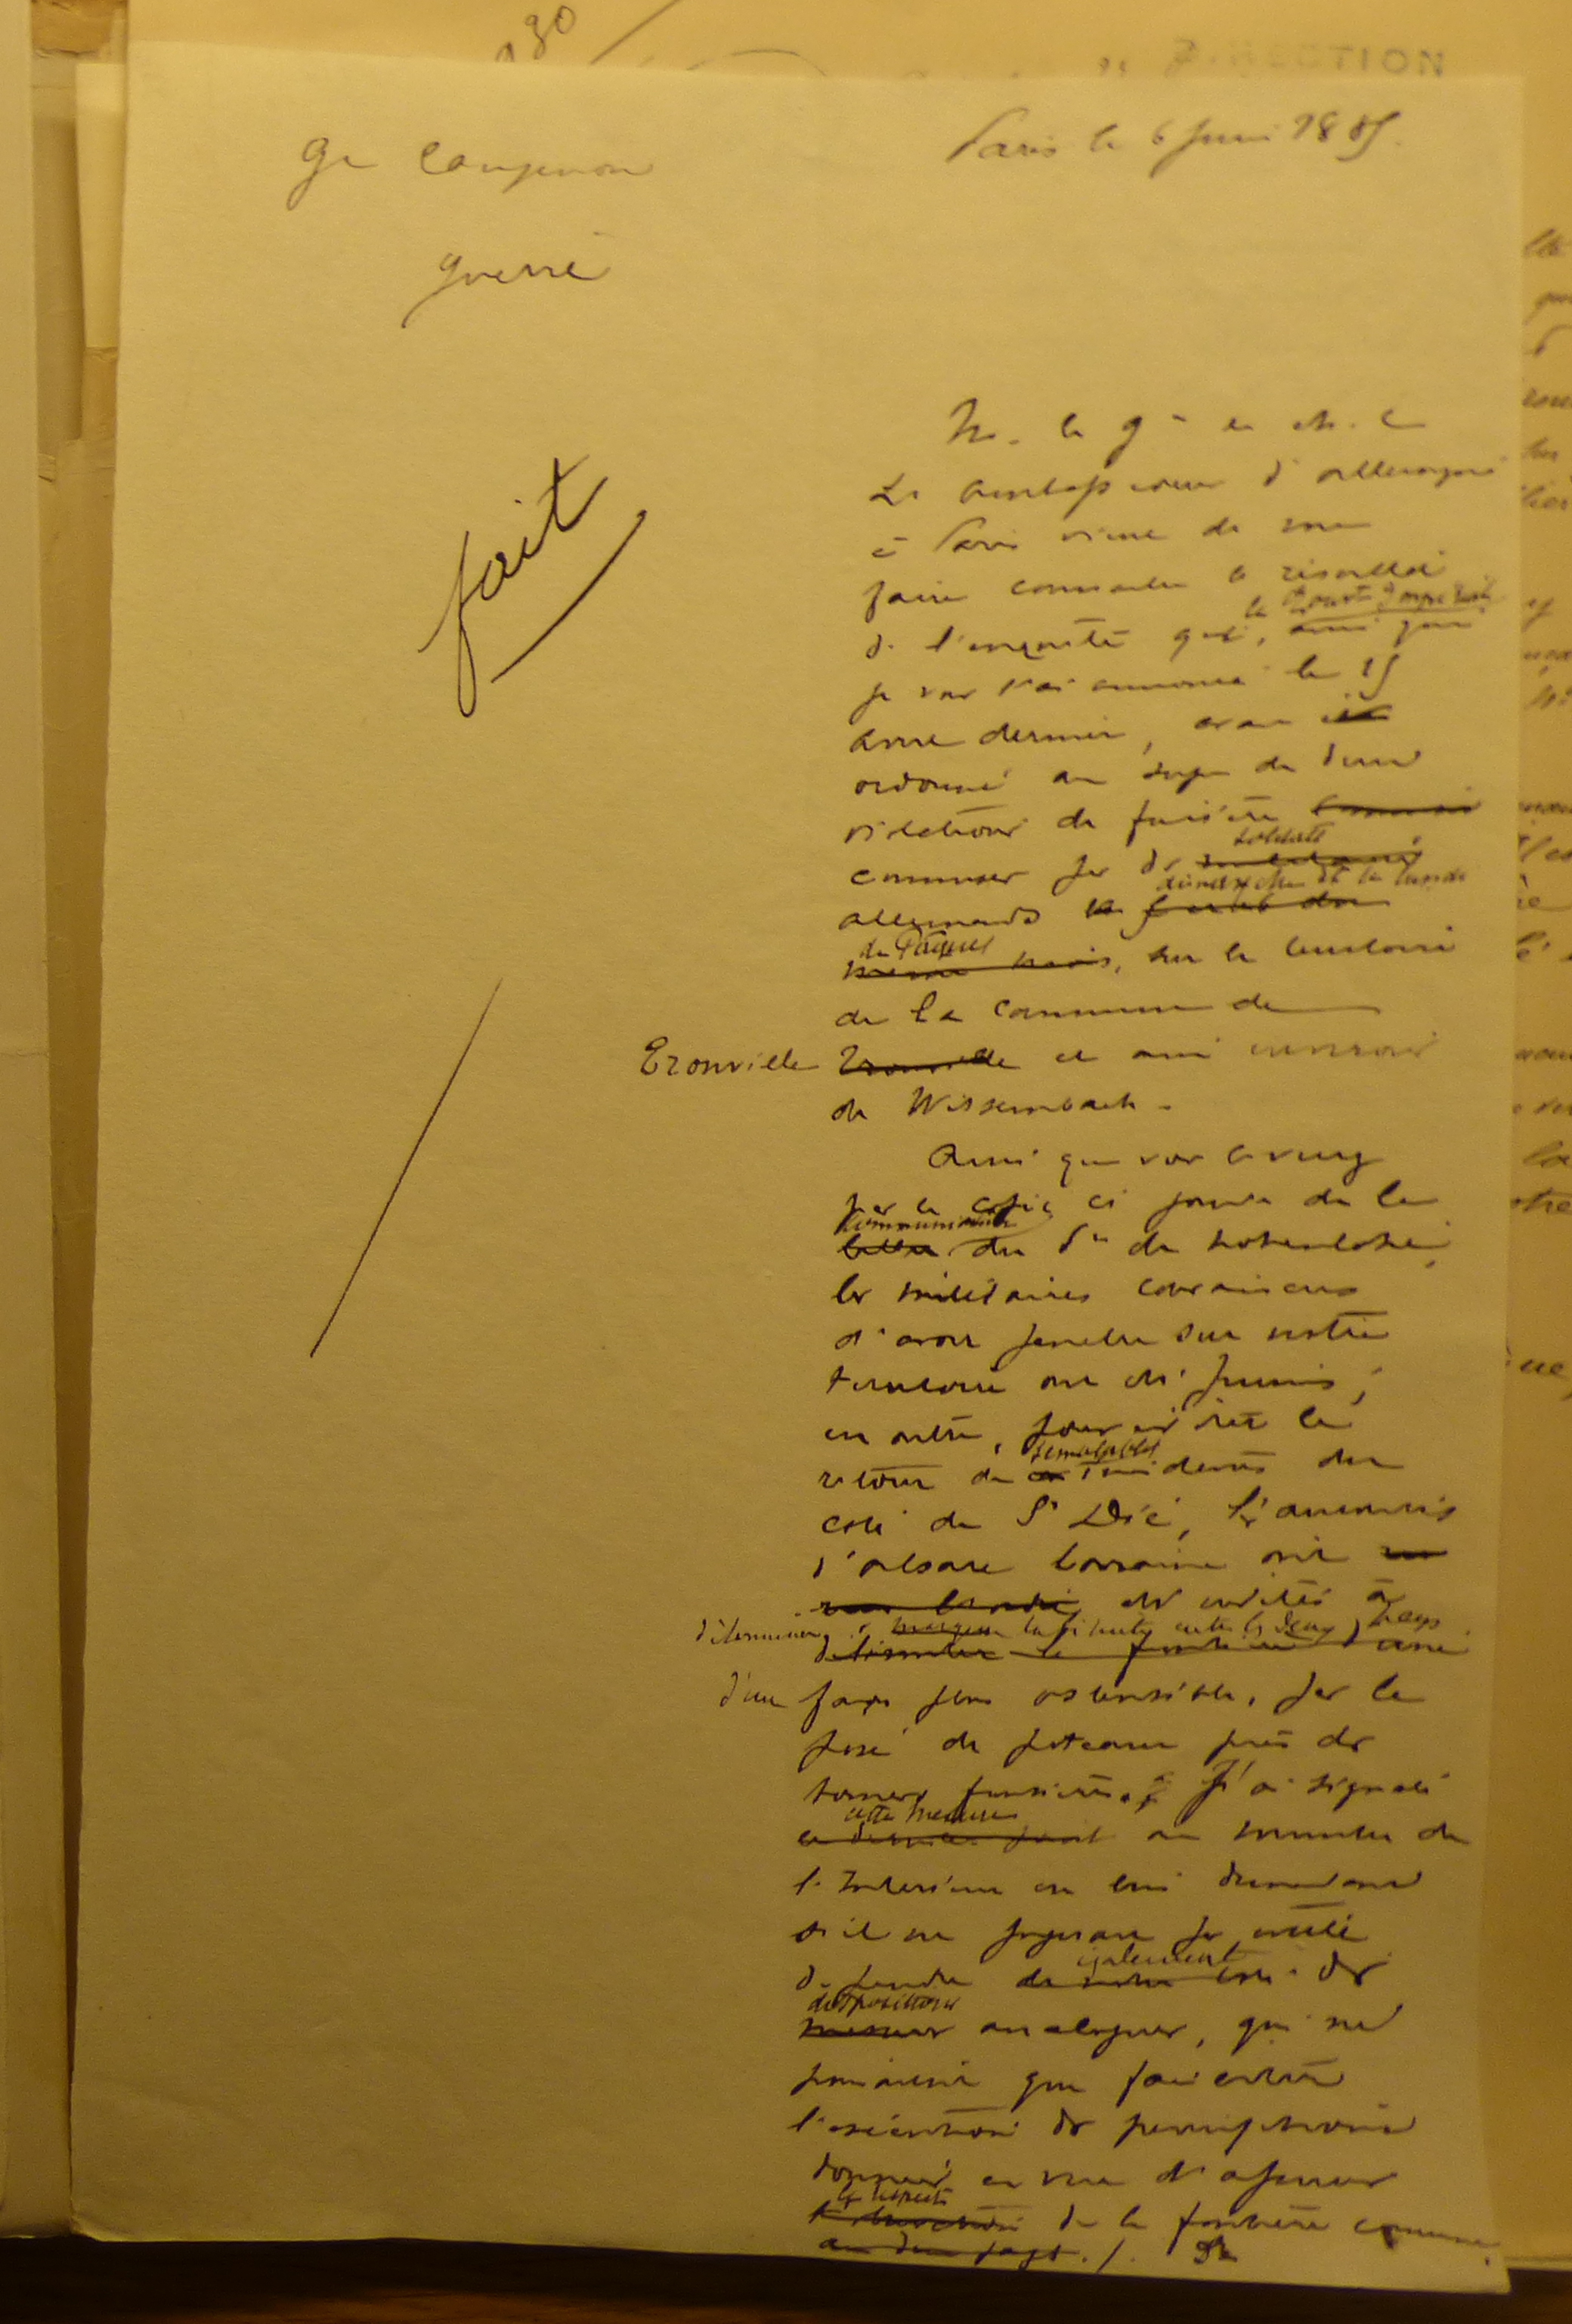 Paris le 6 Juin 1885.
Gl Campenon
guerre
fait
M. le gal et ch. c
L'ambassadeur d'Allemagne
à Paris vient de me
faire connaître le résultat
de l'enquête que, le Gouvt Impérial ainsi que
je vous l'ai annoncé le 15
avril dernier, avait
ordonné au sujet de deux
violations de frontière
commises par des soldats
allemands le dimanche et le lundi
de Pâques même mois, sur le territoire
de la commune de
Bronville et aux environs
de Wissembach.
Ainsi que vous le verrez
par la copie ci jointe de la
communication lettre du Pce de Hohenlohe,
les militaires convaincus
d'avoir pénétré sur notre
territoire ont été punis ;
en outre, pour éviter le
retour de semblables incidents du
côté de St Dié, les autorités
d'Alsace Lorraine ont
été invitées à
déterminer la limite entre les deux pays
d'une façon plus ostensible, par la
pose de poteaux près des
bornes frontières. J'ai signalé
cette mesure ce dernier point au ministre de
l'Intérieur en lui demandant
s'il ne jugerait pas utile
de prendre également de notre côté des
dispositions mesures analogues, qui ne
pourraient que faciliter
l'exécution des prescriptions
données en vue d'assurer
le respect de la frontière commune
aux deux pays./.